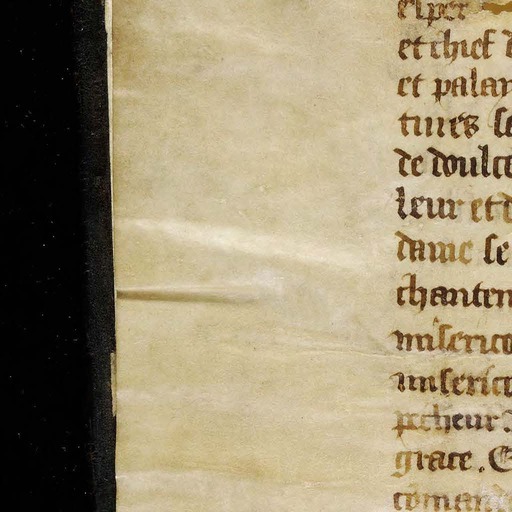 et chief d
et palar
tures se
de doulce
leur et d
dame se
chanten
miserico
miserico
pecheur
grace. E
comande